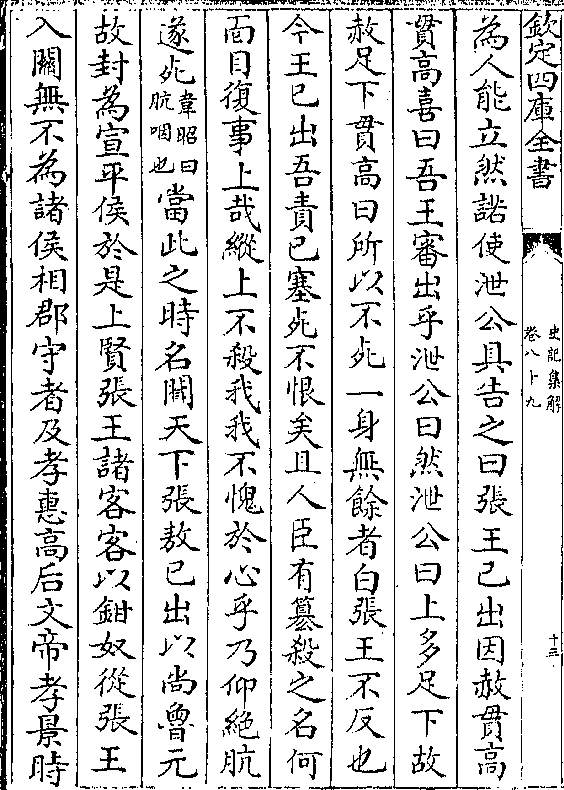 欽定四庫全書
史記集解
卷八十九
十三
為人能立然諾使泄公具告之曰張王已出因赦貫高
貫高喜曰吾王審出乎泄公曰然泄公曰上多足下故
赦足下貫高曰所以不死一身無餘者白張王不反也
今王已出吾責已塞死不恨矣且人臣有篡殺之名何
面目復事上哉縱上不殺我我不愧於心乎乃仰絶肮
遂死韋昭曰肮咽也當此之時名聞天下張敖已出以尚魯元
故封為宣平侯於是上賢張王諸客客以鉗奴從張王
入關無不為諸侯相郡守者及孝惠高后文帝孝景時